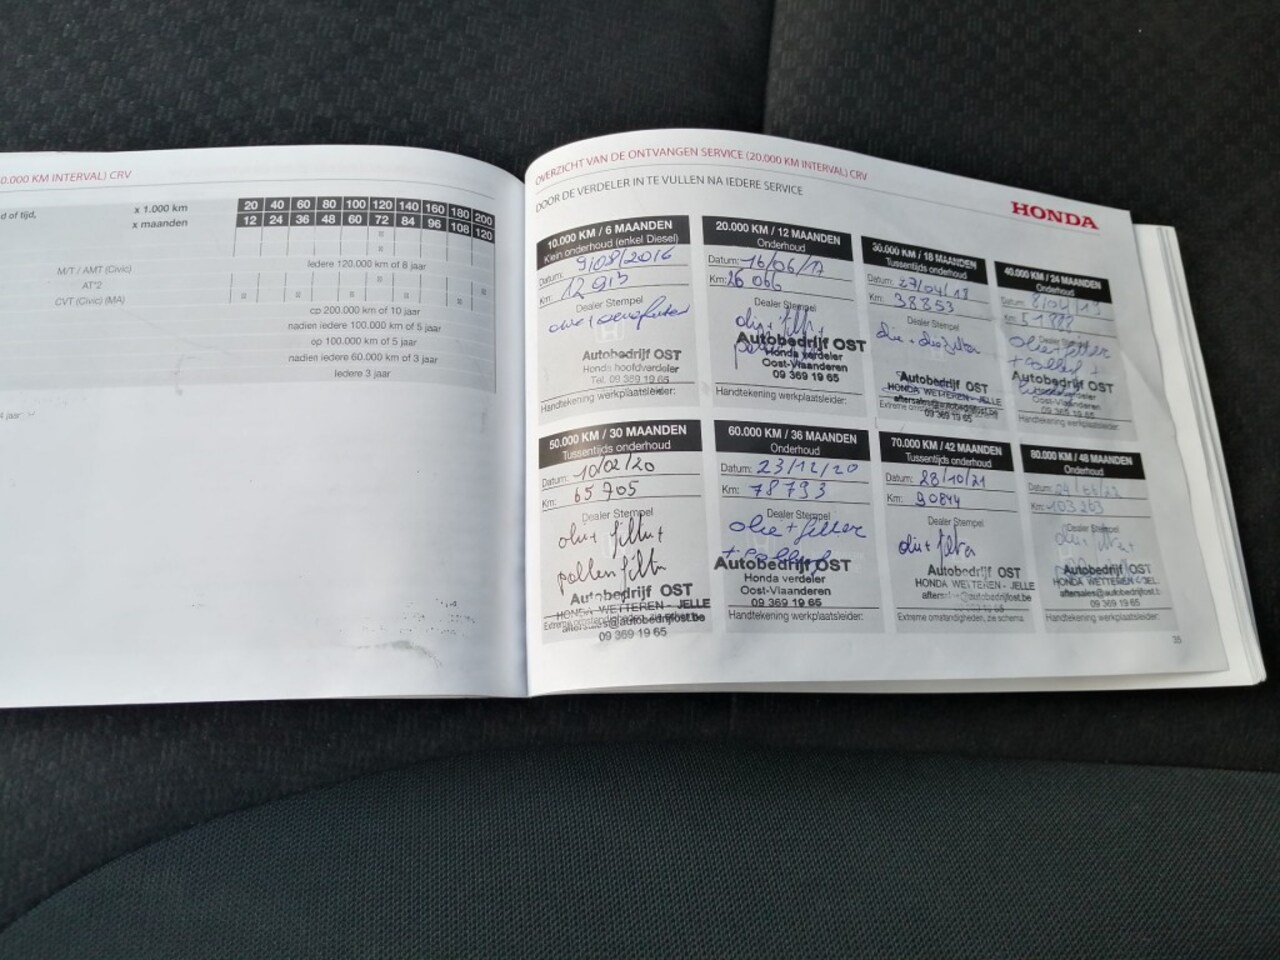 0.000 KM INTERVAL) CRV
d of tijd,
x 1.000 km 20 40 60 80 100 120 140 160 180 200
x maanden 12 24 36 48 60 72 84 96 108 120
Iedere 120.000 km of 8 jaar
M/T / AMT (Civic)
AT*2
CVT (Civic) (MA)
op 200.000 km of 10 jaar
nadien iedere 100.000 km of 5 jaar
op 100.000 km of 5 jaar
nadien iedere 60.000 km of 3 jaar
Iedere 3 jaar
4 jaar
OVERZICHT VAN DE ONTVANGEN SERVICE (20.000 KM INTERVAL) CRV
DOOR DE VERDELER IN TE VULLEN NA IEDERE SERVICE
HONDA
10.000 KM / 6 MAANDEN
Klein onderhoud (enkel Diesel)
Datum: 9/08/2016
Km: 12 913
Dealer Stempel
Autobedrijf OST
Honda hoofdverdeler
Tel. 09 369 19 65
Handtekening werkplaatsleider:
20.000 KM / 12 MAANDEN
Onderhoud
Datum: 16/06/17
Km: 26 066
Dealer Stempel
olie + filter +
Autobedrijf OST
Honda verdeler
Oost-Vlaanderen
09 369 19 65
Handtekening werkplaatsleider:
30.000 KM / 18 MAANDEN
Tussentijds onderhoud
Datum: 27/04/18
Km: 38853
Dealer Stempel
olie + oliefilter
Autobedrijf OST
HONDA WETTEREN - JELLE
aftersales@autobedrijfost.be
09 369 19 65
40.000 KM / 24 MAANDEN
Onderhoud
Datum: 8/04/19
Km: 51888
Dealer Stempel
olie + filter
+ pollen +
Autobedrijf OST
Oost-Vlaanderen
09 369 19 65
Handtekening werkplaatsleider:
50.000 KM / 30 MAANDEN
Tussentijds onderhoud
Datum: 10/02/20
Km: 65 705
Dealer Stempel
olie + filter +
pollenfilter
Autobedrijf OST
HONDA WETTEREN - JELLE
aftersales@autobedrijfost.be
09 369 19 65
60.000 KM / 36 MAANDEN
Onderhoud
Datum: 23/12/20
Km: 78793
Dealer Stempel
olie + filter
Autobedrijf OST
Honda verdeler
Oost-Vlaanderen
09 369 19 65
Handtekening werkplaatsleider:
70.000 KM / 42 MAANDEN
Tussentijds onderhoud
Datum: 28/10/21
Km: 90844
Dealer Stempel
olie + filter
Autobedrijf OST
HONDA WETTEREN - JELLE
aftersales@autobedrijfost.be
09 369 19 65
Extreme omstandigheden, zie schema
80.000 KM / 48 MAANDEN
Onderhoud
Datum: 24/06/22
Km: 103263
Dealer Stempel
olie + filter +
Autobedrijf OST
HONDA WETTEREN
aftersales@autobedrijfost.b
09 369 19 65
Handtekening werkplaatsleider:
35